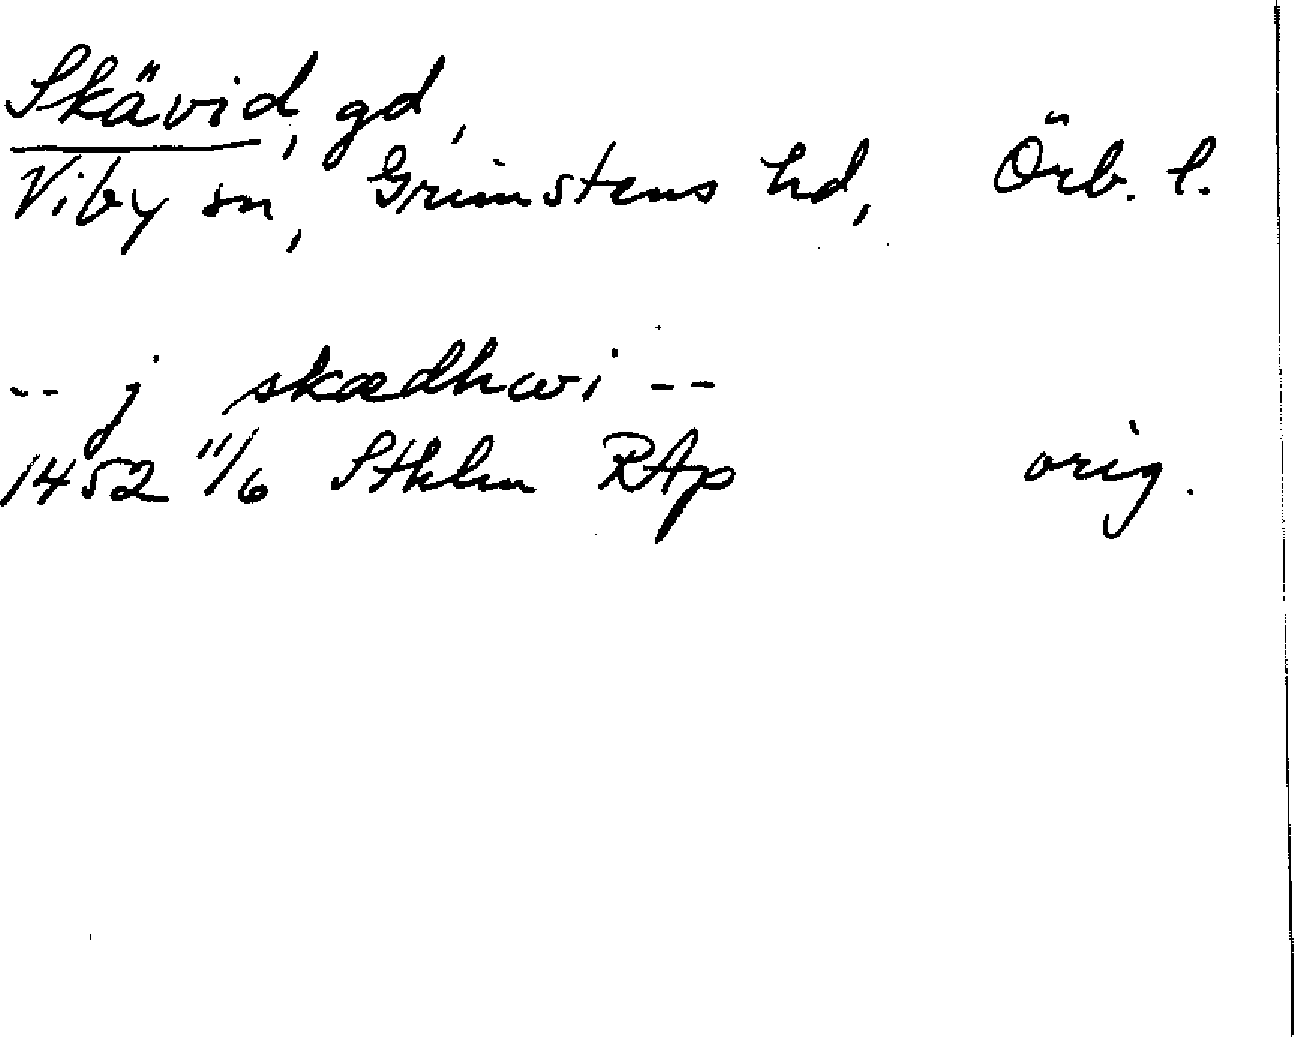 Skävid, gd,
Viby sn, Grimstens hd, Örb. l.
-- j skædhwi --
1452 11/6 Sthlm RAp orig.